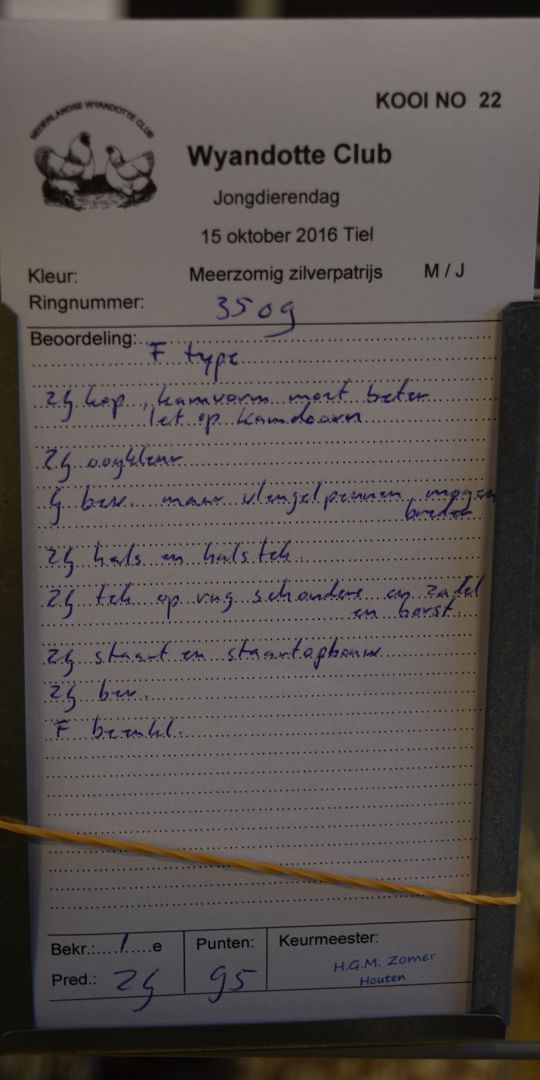 KOOI NO 22
NEDERLANDSE WYANDOTTE CLUB
Wyandotte Club
Jongdierendag
15 oktober 2016 Tiel
Kleur: Meerzomig zilverpatrijs M / J
Ringnummer: 350g
Beoordeling: F type
ZG kop, kamvorm moet beter
let op kamdoorn
ZG oogkleur
G bev. maar vleugelpennen mogen
breder
ZG hals en halstek.
ZG tek op rug schouders en zadel
en borst.
ZG staart en staartopbouw
ZG bev.
F beenkl.
Bekr.: 1 e Punten: Keurmeester:
Pred.: ZG 95 H.G.M. Zomer
Houten